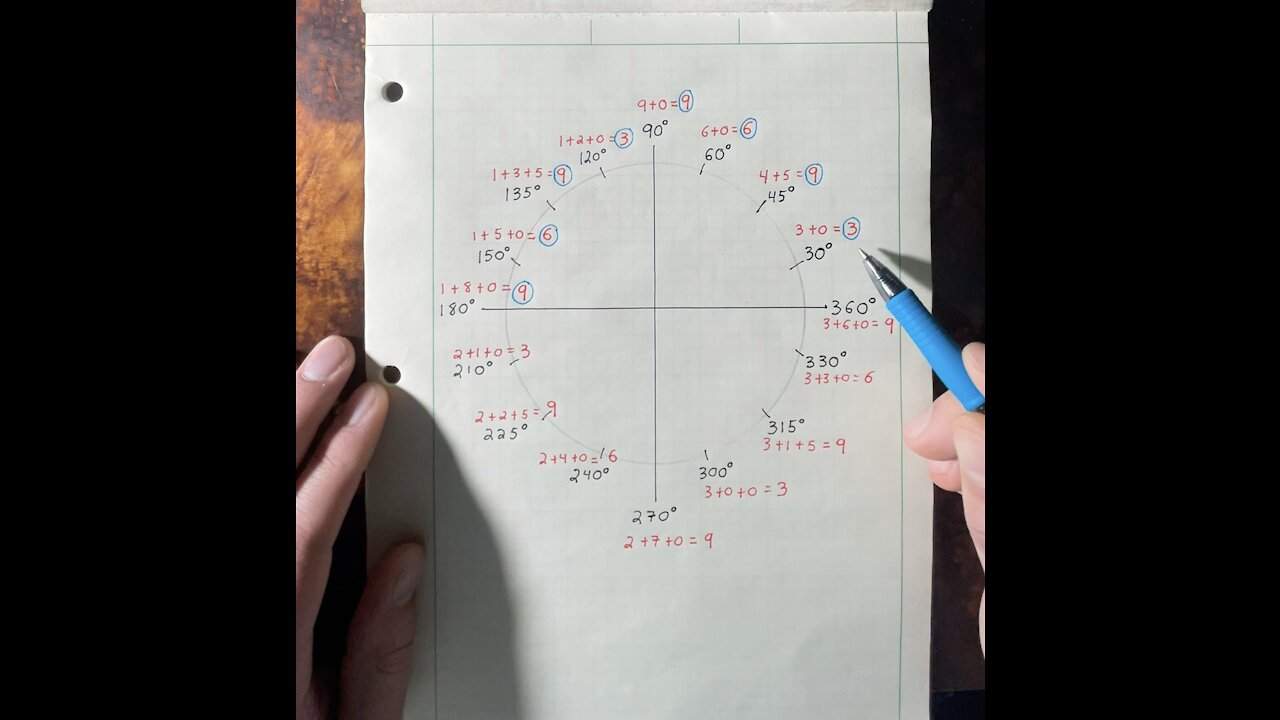 9+0=9
90°
6+0=6
60°
1+2+0=3
120°
4+5=9
45°
1+3+5=9
135°
3+0=3
30°
1+5+0=6
150°
1+8+0=9
180°
360°
3+6+0=9
2+1+0=3
210°
330°
3+3+0=6
2+2+5=9
225°
315°
3+1+5=9
2+4+0=6
240°
300°
3+0+0=3
270°
2+7+0=9